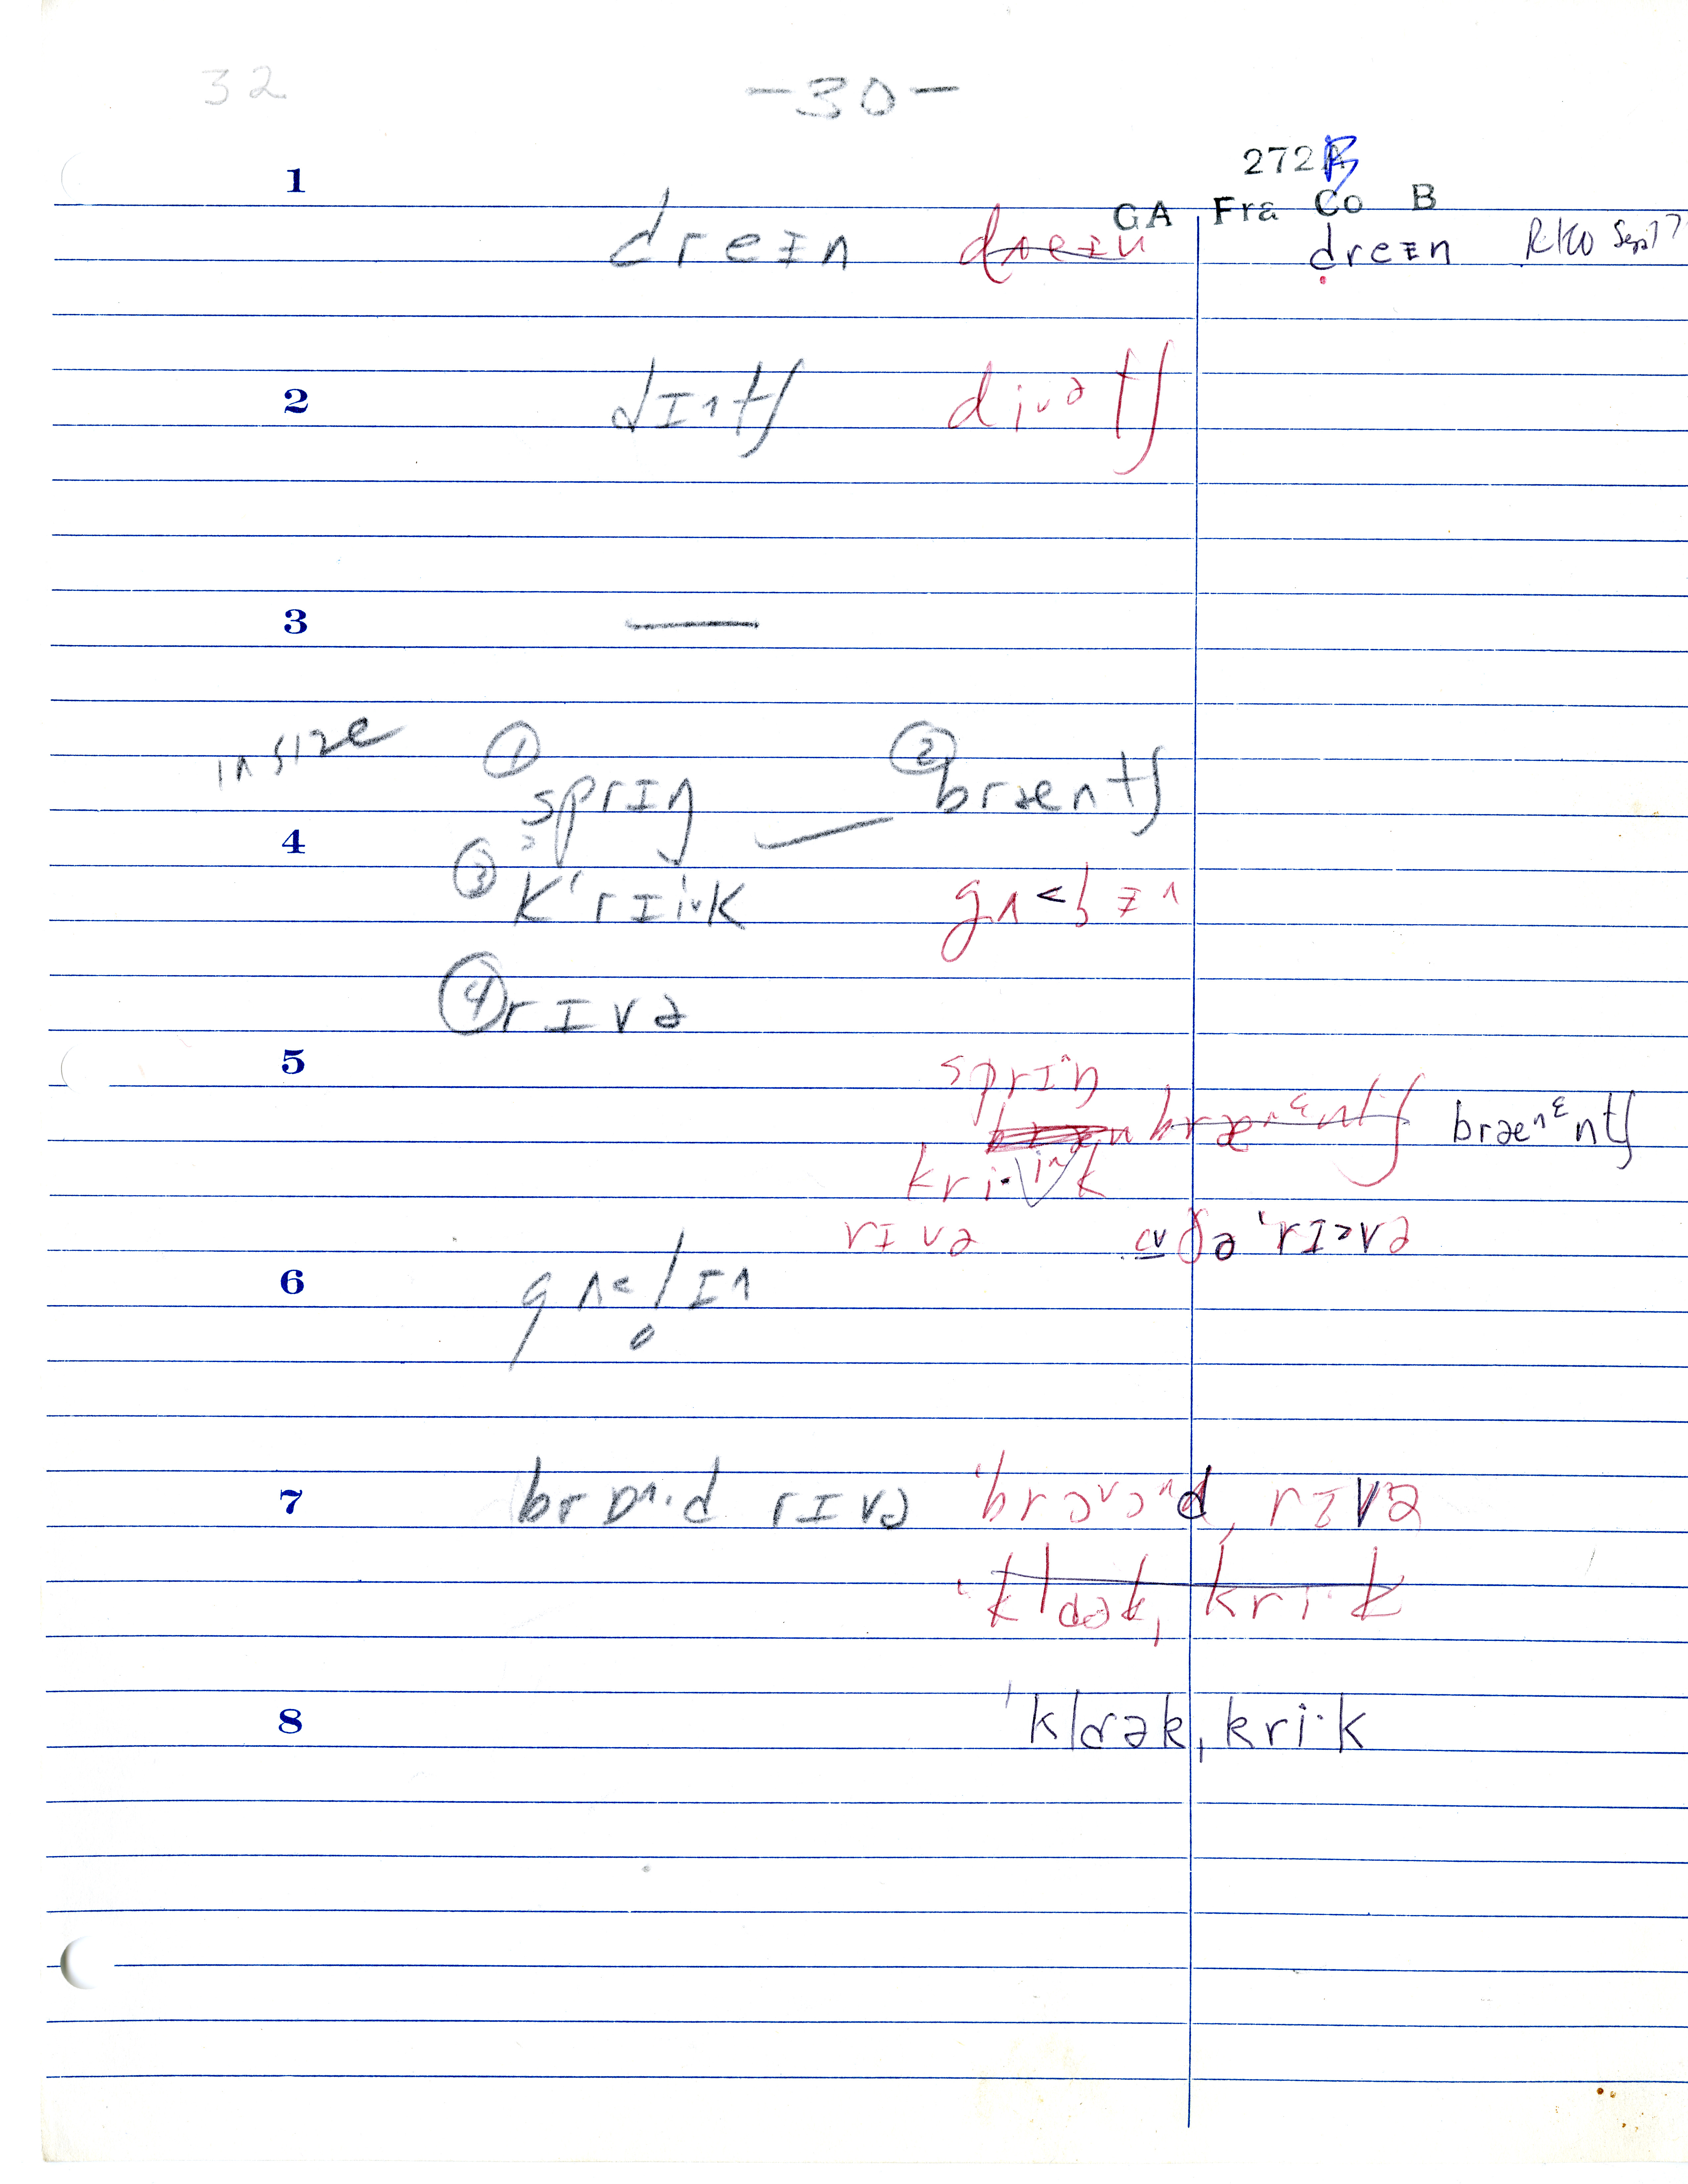 32 -30-
272B
1 GA Fra Co B
dreɪn dreɪn dreᵻn RKO Sept 7
2 dɪntʃ diᵛətʃ
3 —
in size ① ②
sprɪŋ bræntʃ
4 ③
kʻrɪiᵛk
④ rɪvə
5 sprɪ^ŋ
bræ^ᵋntʃ bræ^ᵋntʃ
kri·k
rɪvə ðə ˈrɪ>və
6 gʌ<lɪn
7 brɒ^·d rɪvə ˈbrɔᵛɔ^d, rɪvə
ˈklɑək, kri·k
8 ˈklɑək, kri·k